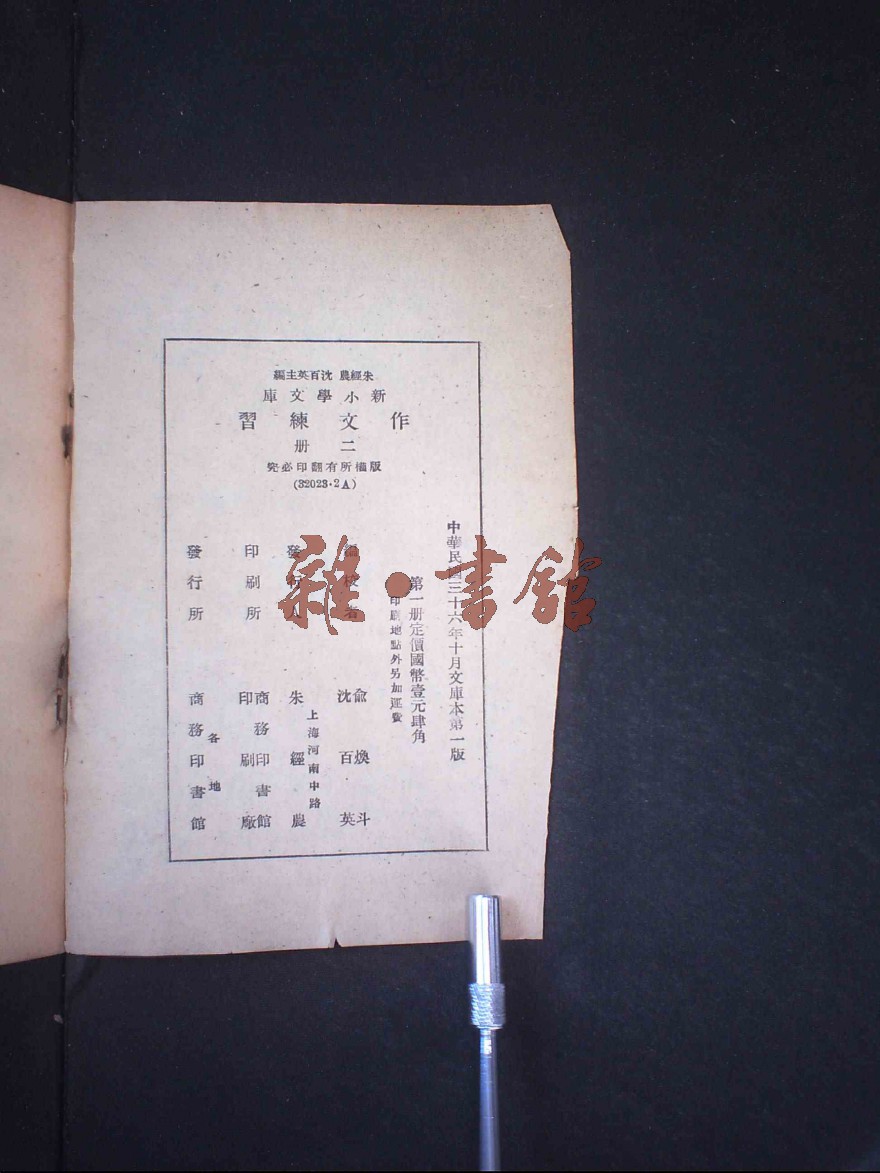 朱經農 沈百英主編
新小學文庫
作文練習
二册
版權所有翻印必究
(32023·2A)
中華民國三十六年十月文庫本第一版
第一册定價國幣壹元肆角
印刷地點外另加運費
編校者
俞煥斗
沈百英
發行人
朱經農
上海河南中路
印刷所
商務印書館
印刷廠
發行所
商務印書館
各地
雜·書館